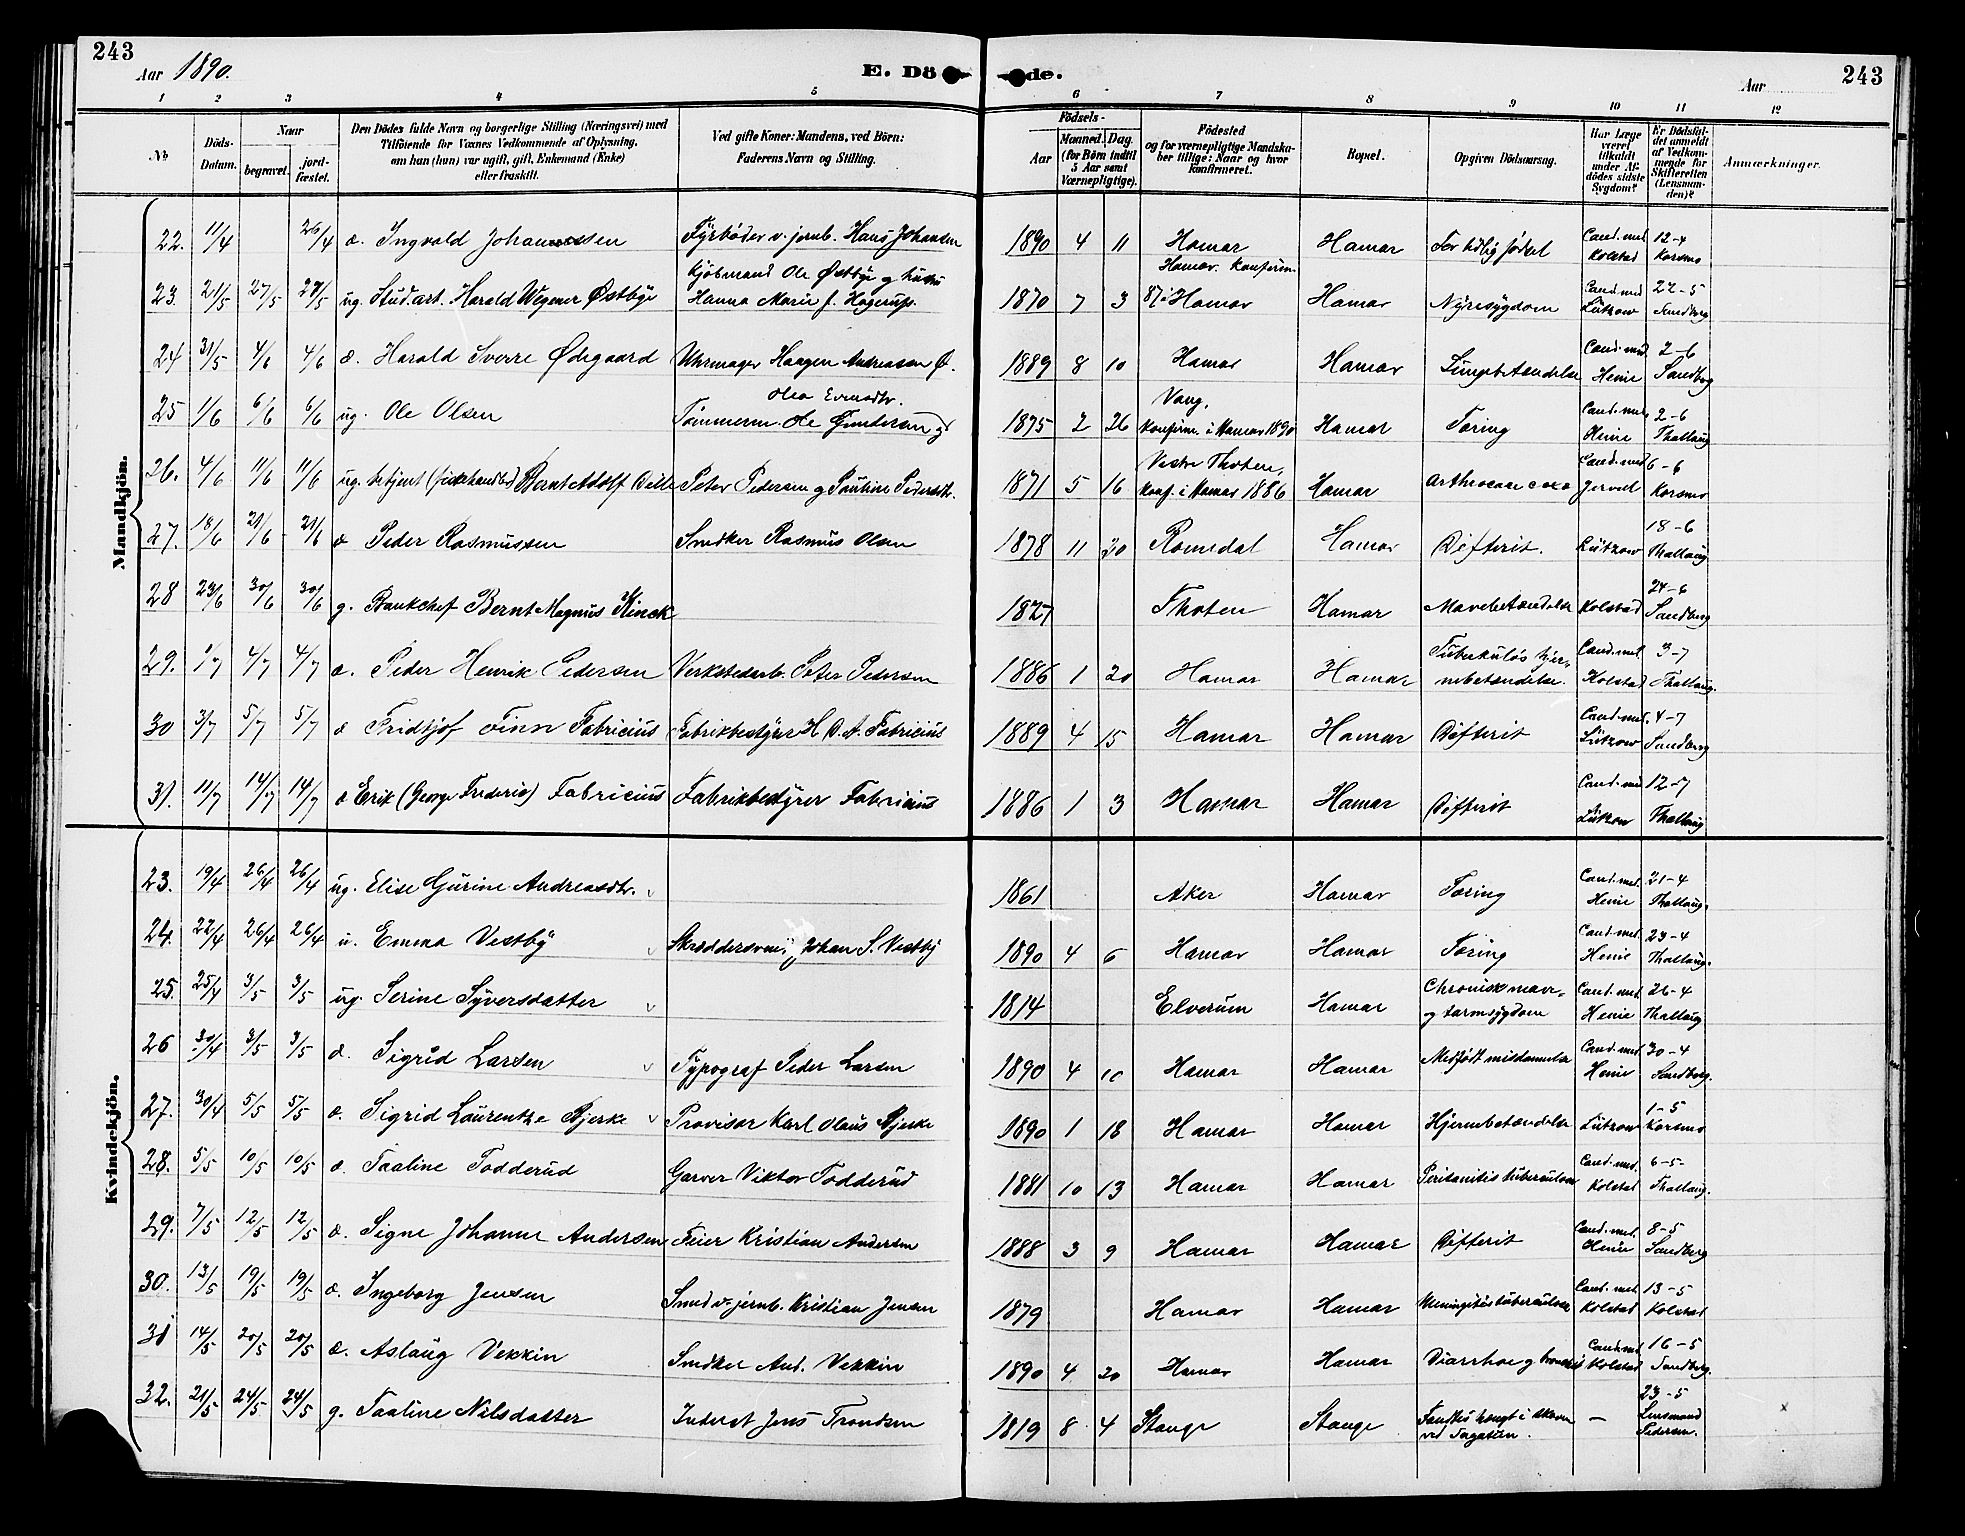 243
Aar 1890.
E. Dö de.
Aar
243
1 2 3 4 5 6 7 8 9 10 11 12
No
Döds-Datum.
Naar
begravet.
jord-fæstet.
Den Dödes fulde Navn og borgerlige Stilling (Næringsvei) med
Tilföiende for Voxnes Vedkommende af Oplysning,
om han (hun) var ugift, gift, Enkemand (Enke)
eller fraskilt.
Ved gifte Koner: Mandens, ved Börn:
Faderens Navn og Stilling.
Födsels-
Aar
Maaned. Dag.
(for Börn indtil
5 Aar samt
Værnepligtige).
Födested
og for værnepligtige Mandska-
ber tillige: Naar og hvor
konfirmeret.
Bopæl.
Opgiven Dödsaarsag.
Har Læge
været
tilkaldt
under Af-
dödes sidste
Sygdom?
Er Dödsfal-
det anmeldt
af Vedkom-
mende for
Skifteretten
(Lensman-
den)?
Anmærkninger.
Mandkjön.
22. 11/4 26/4 d. Ingvald Johannessen Fyrbøder v. jernb. Hans Johansen 1890 4 11 Hamar Hamar For tidlig født Cand. med Kolstad 12-4 Korsmo
23. 21/5 27/5 27/5 ug. Stud. art. Harald Wegener Østbye Kjøbmand Ole Østbye og hustru Hanna Marie f. Hagerup. 1870 7 3 Hamar. Konfirm. 87 i Hamar Hamar Nyresygdom Cand. med Lützow 22-5 Sandberg
24 31/5 4/6 4/6 d. Harald Sverre Ødegaard Uhrmager Haagen Andreassen Ø. 1889 8 10 Hamar Hamar Lungebetændelse Cand. med. Heme 2-6 Sandberg
25 1/6 6/6 6/6 ug. Ole Olsen Tømmerm. Ole Gundersen og Olea Evensdtr. 1875 2 26 Vang, Konfirm. i Hamar 1890 Hamar Tæring Cand. med. Heme 2-6 Thallaug
26. 4/6 11/6 11/6 ug. betjent Bernt Adolf Peter Pedersen og Pauline Pedersdtr. 1871 5 16 Vestre Thoten, Konf. i Hamar 1886 Hamar Arthrocace coxæ Cand. med Jervell 6-6 Korsmo
27. 18/6 21/6 21/6 d Peder Rasmussen Snedker Rasmus Olsen 1878 11 20 Romedal Hamar Difterit. Lützow 18-6 Thallaug
28 23/6 30/6 30/6 g. Bankchef Bernt Magnus Kinck 1827 Thoten Hamar Mavebetændelse Kolstad 24-6 Sandberg
29. 1/7 4/7 4/7 d. Peder Henrik Pedersen Verkstedarb. Peter Pedersen 1886 1 20 Hamar Hamar Tuberkuløs hjernebetændelse. Cand. med. Kolstad 3-7 Thallaug.
30 3/7 5/7 5/7 d Fridtjof Finn Fabricius Fabrikbestyrer H. D. A. Fabricius 1889 4 15 Hamar Hamar Difterit Cand. med. Lützow 4-7 Sandberg
31. 11/7 14/7 14/7 d Erik (George Frederic) Fabricius Fabrikbestyrer Fabricius 1886 1 3 Hamar Hamar Difterit Cand. med Lützow 12-7 Thallaug
Kvindekjön.
23. 19/4 26/4 26/4 ug. Elise Gurine Andreasdtr. 1861 Aker Hamar Tæring Cand. med. Heme 21-4 Thallaug.
24. 22/4 26/4 26/4 u. Emma Vestby Skræddersv. Johan S. Vestby 1890 4 6 Hamar Hamar Tæring Cand. med. Heme 23-4 Thallaug.
25. 25/4 3/5 3/5 ug. Serine Syversdatter 1814 Elverum Hamar Chronisk mave- og tarmsygdom Cand. med. Heme 26-4 Thallaug
26 30/4 3/5 3/5 d. Sigrid Larsen Typograf Peder Larsen 1890 4 10 Hamar Hamar Medfødt misdannelse Cand. med. Heme 30-4 Sandberg.
27. 30/4 5/5 5/5 d. Sigrid Laurentze Bjerke Provisor Karl Olaus Bjerke 1890 1 18 Hamar Hamar Hjernebetændelse Lützow 1-5 Korsmo
28. 5/5 10/5 10/5 d. Paaline Todderud Garver Viktor Todderud 1881 10 13 Hamar Hamar Peritonitis tuberculosa Cand. med. Kolstad 6-5- Thallaug.
29. 7/5 12/5 12/5 d. Signe Johanne Andersen Feier Kristian Andersen 1888 3 9 Hamar Hamar Difterit Cand. med. Heme 8-5 Sandberg
30. 13/5 19/5 19/5 d. Ingeborg Jensen Smed v. jernb. Kristian Jensen 1879 Hamar Hamar Meningitis tuberculosa Cand. med. Kolstad 13-5 Kolstad
31 14/5 20/5 20/5 d. Aslaug Vekkin Snedker And. Vekkin 1890 4 20 Hamar Hamar Diarrhoe g Cand. med Kolstad 16-5 Sandberg.
32. 21/5 24/5 24/5 g. Paaline Nilsdatter Inderst Jens Trondsen 1819 8 4 Stange Stange Fandtes hængt i skoven ved — 23-5 Lensmand Pedersen.